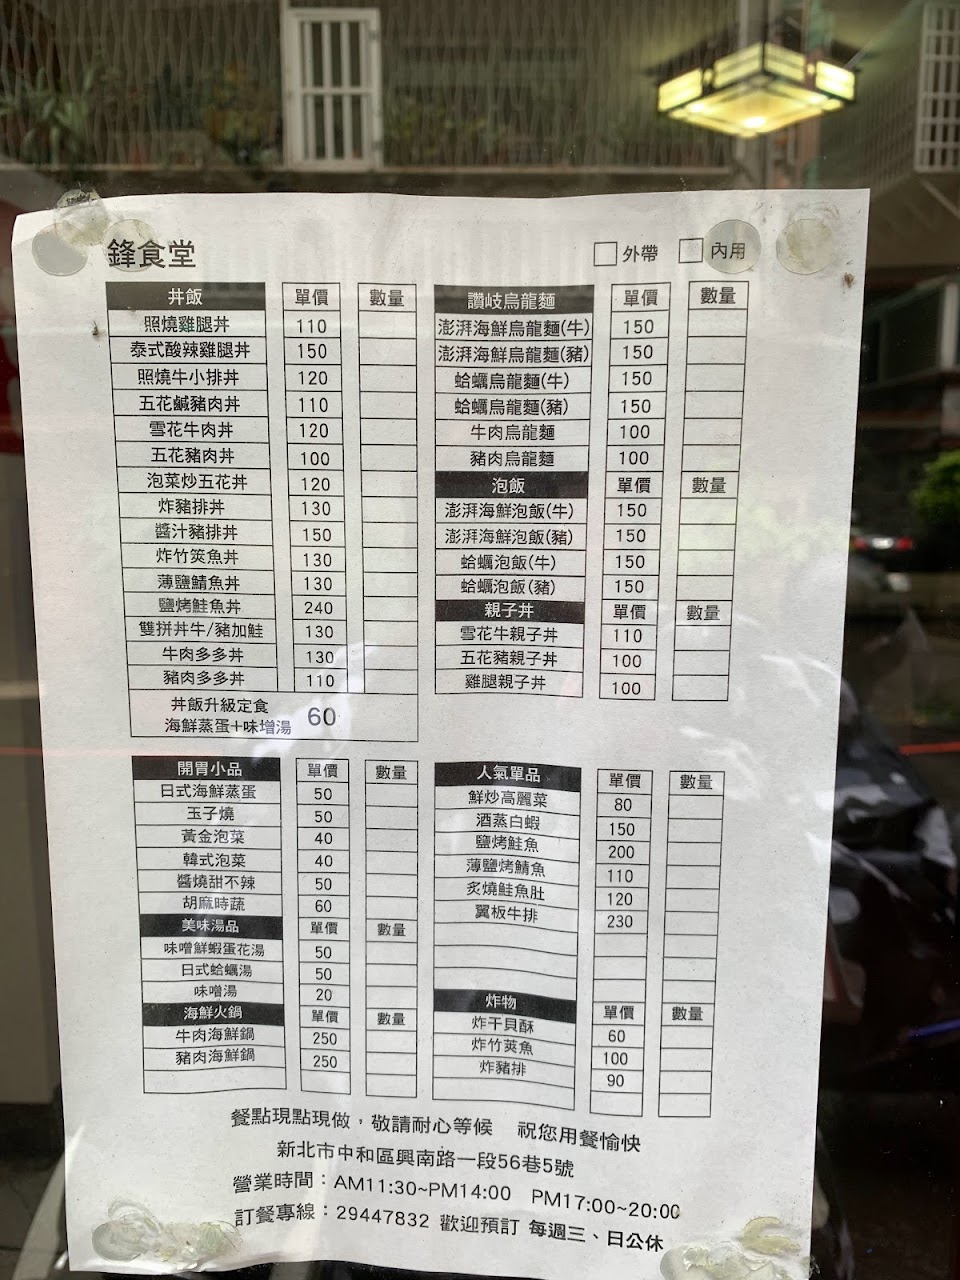 鋒食堂
□外帶 □內用
丼飯 單價 數量
照燒雞腿丼 110
泰式酸辣雞腿丼 150
照燒牛小排丼 120
五花鹹豬肉丼 110
雪花牛肉丼 120
五花豬肉丼 100
泡菜炒五花丼 120
炸豬排丼 130
醬汁豬排丼 150
炸竹筴魚丼 130
薄鹽鯖魚丼 130
鹽烤鮭魚丼 240
雙拼丼牛/豬加鮭 130
牛肉多多丼 130
豬肉多多丼 110
丼飯升級定食
海鮮蒸蛋+味增湯 60
讚岐烏龍麵 單價 數量
澎湃海鮮烏龍麵(牛) 150
澎湃海鮮烏龍麵(豬) 150
蛤蠣烏龍麵(牛) 150
蛤蠣烏龍麵(豬) 150
牛肉烏龍麵 100
豬肉烏龍麵 100
泡飯 單價 數量
澎湃海鮮泡飯(牛) 150
澎湃海鮮泡飯(豬) 150
蛤蠣泡飯(牛) 150
蛤蠣泡飯(豬) 150
親子丼 單價 數量
雪花牛親子丼 110
五花豬親子丼 100
雞腿親子丼 100
開胃小品 單價 數量
日式海鮮蒸蛋 50
玉子燒 50
黃金泡菜 40
韓式泡菜 40
醬燒甜不辣 50
胡麻時蔬 60
美味湯品 單價 數量
味噌鮮蝦蛋花湯 50
日式蛤蠣湯 50
味噌湯 20
海鮮火鍋 單價 數量
牛肉海鮮鍋 250
豬肉海鮮鍋 250
人氣單品 單價 數量
鮮炒高麗菜 80
酒蒸白蝦 150
鹽烤鮭魚 200
薄鹽烤鯖魚 110
炙燒鮭魚肚 120
翼板牛排 230
炸物 單價 數量
炸干貝酥 60
炸竹莢魚 100
炸豬排 90
餐點現點現做，敬請耐心等候 祝您用餐愉快
新北市中和區興南路一段56巷5號
營業時間：AM11:30~PM14:00 PM17:00~20:00
訂餐專線：29447832 歡迎預訂 每週三、日公休